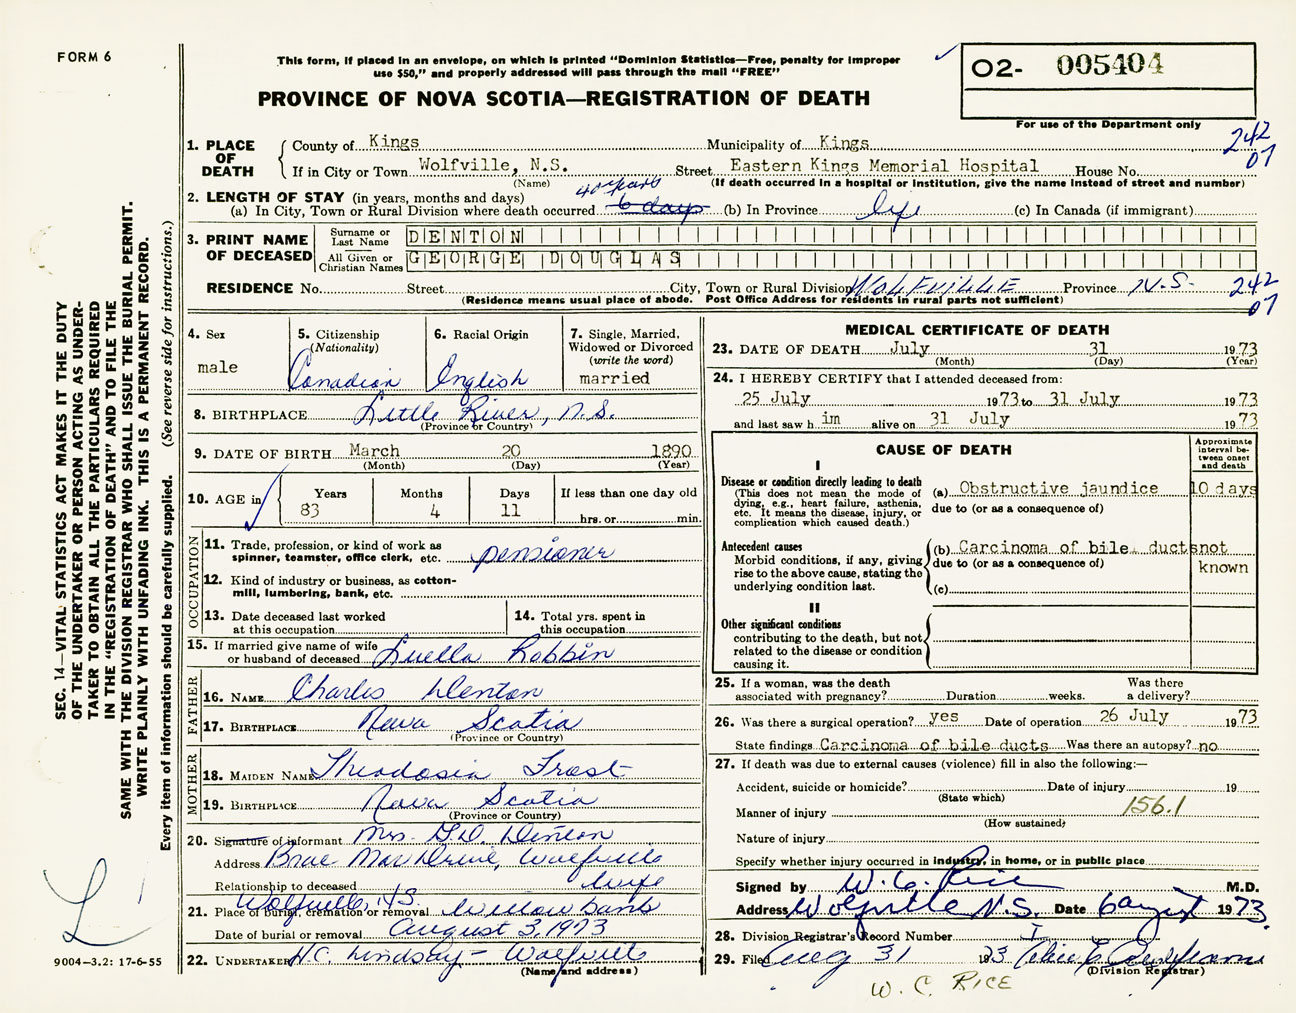 FORM 6
This form, if placed in an envelope, on which is printed "Dominion Statistics—Free, penalty for improper
use $50," and properly addressed will pass through the mail "FREE"
O2- 005404
For use of the Department only
PROVINCE OF NOVA SCOTIA—REGISTRATION OF DEATH
242
07
1. PLACE OF DEATH
County of Kings Municipality of Kings
If in City or Town Wolfville, N.S. Street Eastern Kings Memorial Hospital House No.
(Name) (If death occurred in a hospital or institution, give the name instead of street and number)
2. LENGTH OF STAY (in years, months and days) 40 years
(a) In City, Town or Rural Division where death occurred 6 days (b) In Province life (c) In Canada (if immigrant)
3. PRINT NAME OF DECEASED
Surname or Last Name DENTON
All Given or Christian Names GEORGE DOUGLAS
RESIDENCE No. Street City, Town or Rural Division Wolfville Province N.S. 242
(Residence means usual place of abode. Post Office Address for residents in rural parts not sufficient) 07
4. Sex
male
5. Citizenship
(Nationality)
Canadian
6. Racial Origin
English
7. Single, Married,
Widowed or Divorced
(write the word)
married
8. BIRTHPLACE Little River, N.S.
(Province or Country)
9. DATE OF BIRTH March 20 1890
(Month) (Day) (Year)
10. AGE in
Years Months Days If less than one day old
83 4 11 hrs. or min.
OCCUPATION
11. Trade, profession, or kind of work as
spinner, teamster, office clerk, etc. pensioner
12. Kind of industry or business, as cotton-
mill, lumbering, bank, etc.
13. Date deceased last worked
at this occupation
14. Total yrs. spent in
this occupation
15. If married give name of wife
or husband of deceased Luella Robbin
FATHER
16. NAME Charles Denton
17. BIRTHPLACE Nova Scotia
(Province or Country)
MOTHER
18. MAIDEN NAME Theodosia Frost
19. BIRTHPLACE Nova Scotia
(Province or Country)
20. Signature of informant Mrs. G.D. Denton
Address Brae Mar Drive, Wolfville
Relationship to deceased Wife
Wolfville, N.S.
21. Place of Burial, cremation or removal Willowbank
Date of burial or removal August 3, 1973
22. UNDERTAKER H.C. Lindsay – Wolfville
(Name and address)
MEDICAL CERTIFICATE OF DEATH
23. DATE OF DEATH July 31 1973
(Month) (Day) (Year)
24. I HEREBY CERTIFY that I attended deceased from:
25 July 1973 to 31 July 1973
and last saw h im alive on 31 July 1973
CAUSE OF DEATH
Approximate
interval be-
tween onset
and death
I
Disease or condition directly leading to death
(This does not mean the mode of
dying, e.g., heart failure, asthenia,
etc. It means the disease, injury, or
complication which caused death.)
(a) Obstructive jaundice 10 days
due to (or as a consequence of)
Antecedent causes
Morbid conditions, if any, giving
rise to the above cause, stating the
underlying condition last.
(b) Carcinoma of bile ducts not
due to (or as a consequence of) known
(c)
II
Other significant conditions
contributing to the death, but not
related to the disease or condition
causing it.
25. If a woman, was the death
associated with pregnancy? Duration weeks. Was there
a delivery?
26. Was there a surgical operation? yes Date of operation 26 July 1973
State findings Carcinoma of bile ducts Was there an autopsy? no
27. If death was due to external causes (violence) fill in also the following:—
Accident, suicide or homicide? Date of injury 19
(State which)
Manner of injury 156.1
(How sustained)
Nature of injury
Specify whether injury occurred in industry, in home, or in public place
Signed by W. C. Rice M.D.
Address Wolfville N.S. Date 6 August 1973
28. Division Registrar's Record Number
29. Filed Aug 31 1973
(Division Registrar)
W. C. RICE
SEC. 14—VITAL STATISTICS ACT MAKES IT THE DUTY
OF THE UNDERTAKER OR PERSON ACTING AS UNDER-
TAKER TO OBTAIN ALL THE PARTICULARS REQUIRED
IN THE "REGISTRATION OF DEATH" AND TO FILE THE
SAME WITH THE DIVISION REGISTRAR WHO SHALL ISSUE THE BURIAL PERMIT.
WRITE PLAINLY WITH UNFADING INK. THIS IS A PERMANENT RECORD.
Every item of information should be carefully supplied. (See reverse side for instructions.)
9004-3.2: 17-6-55